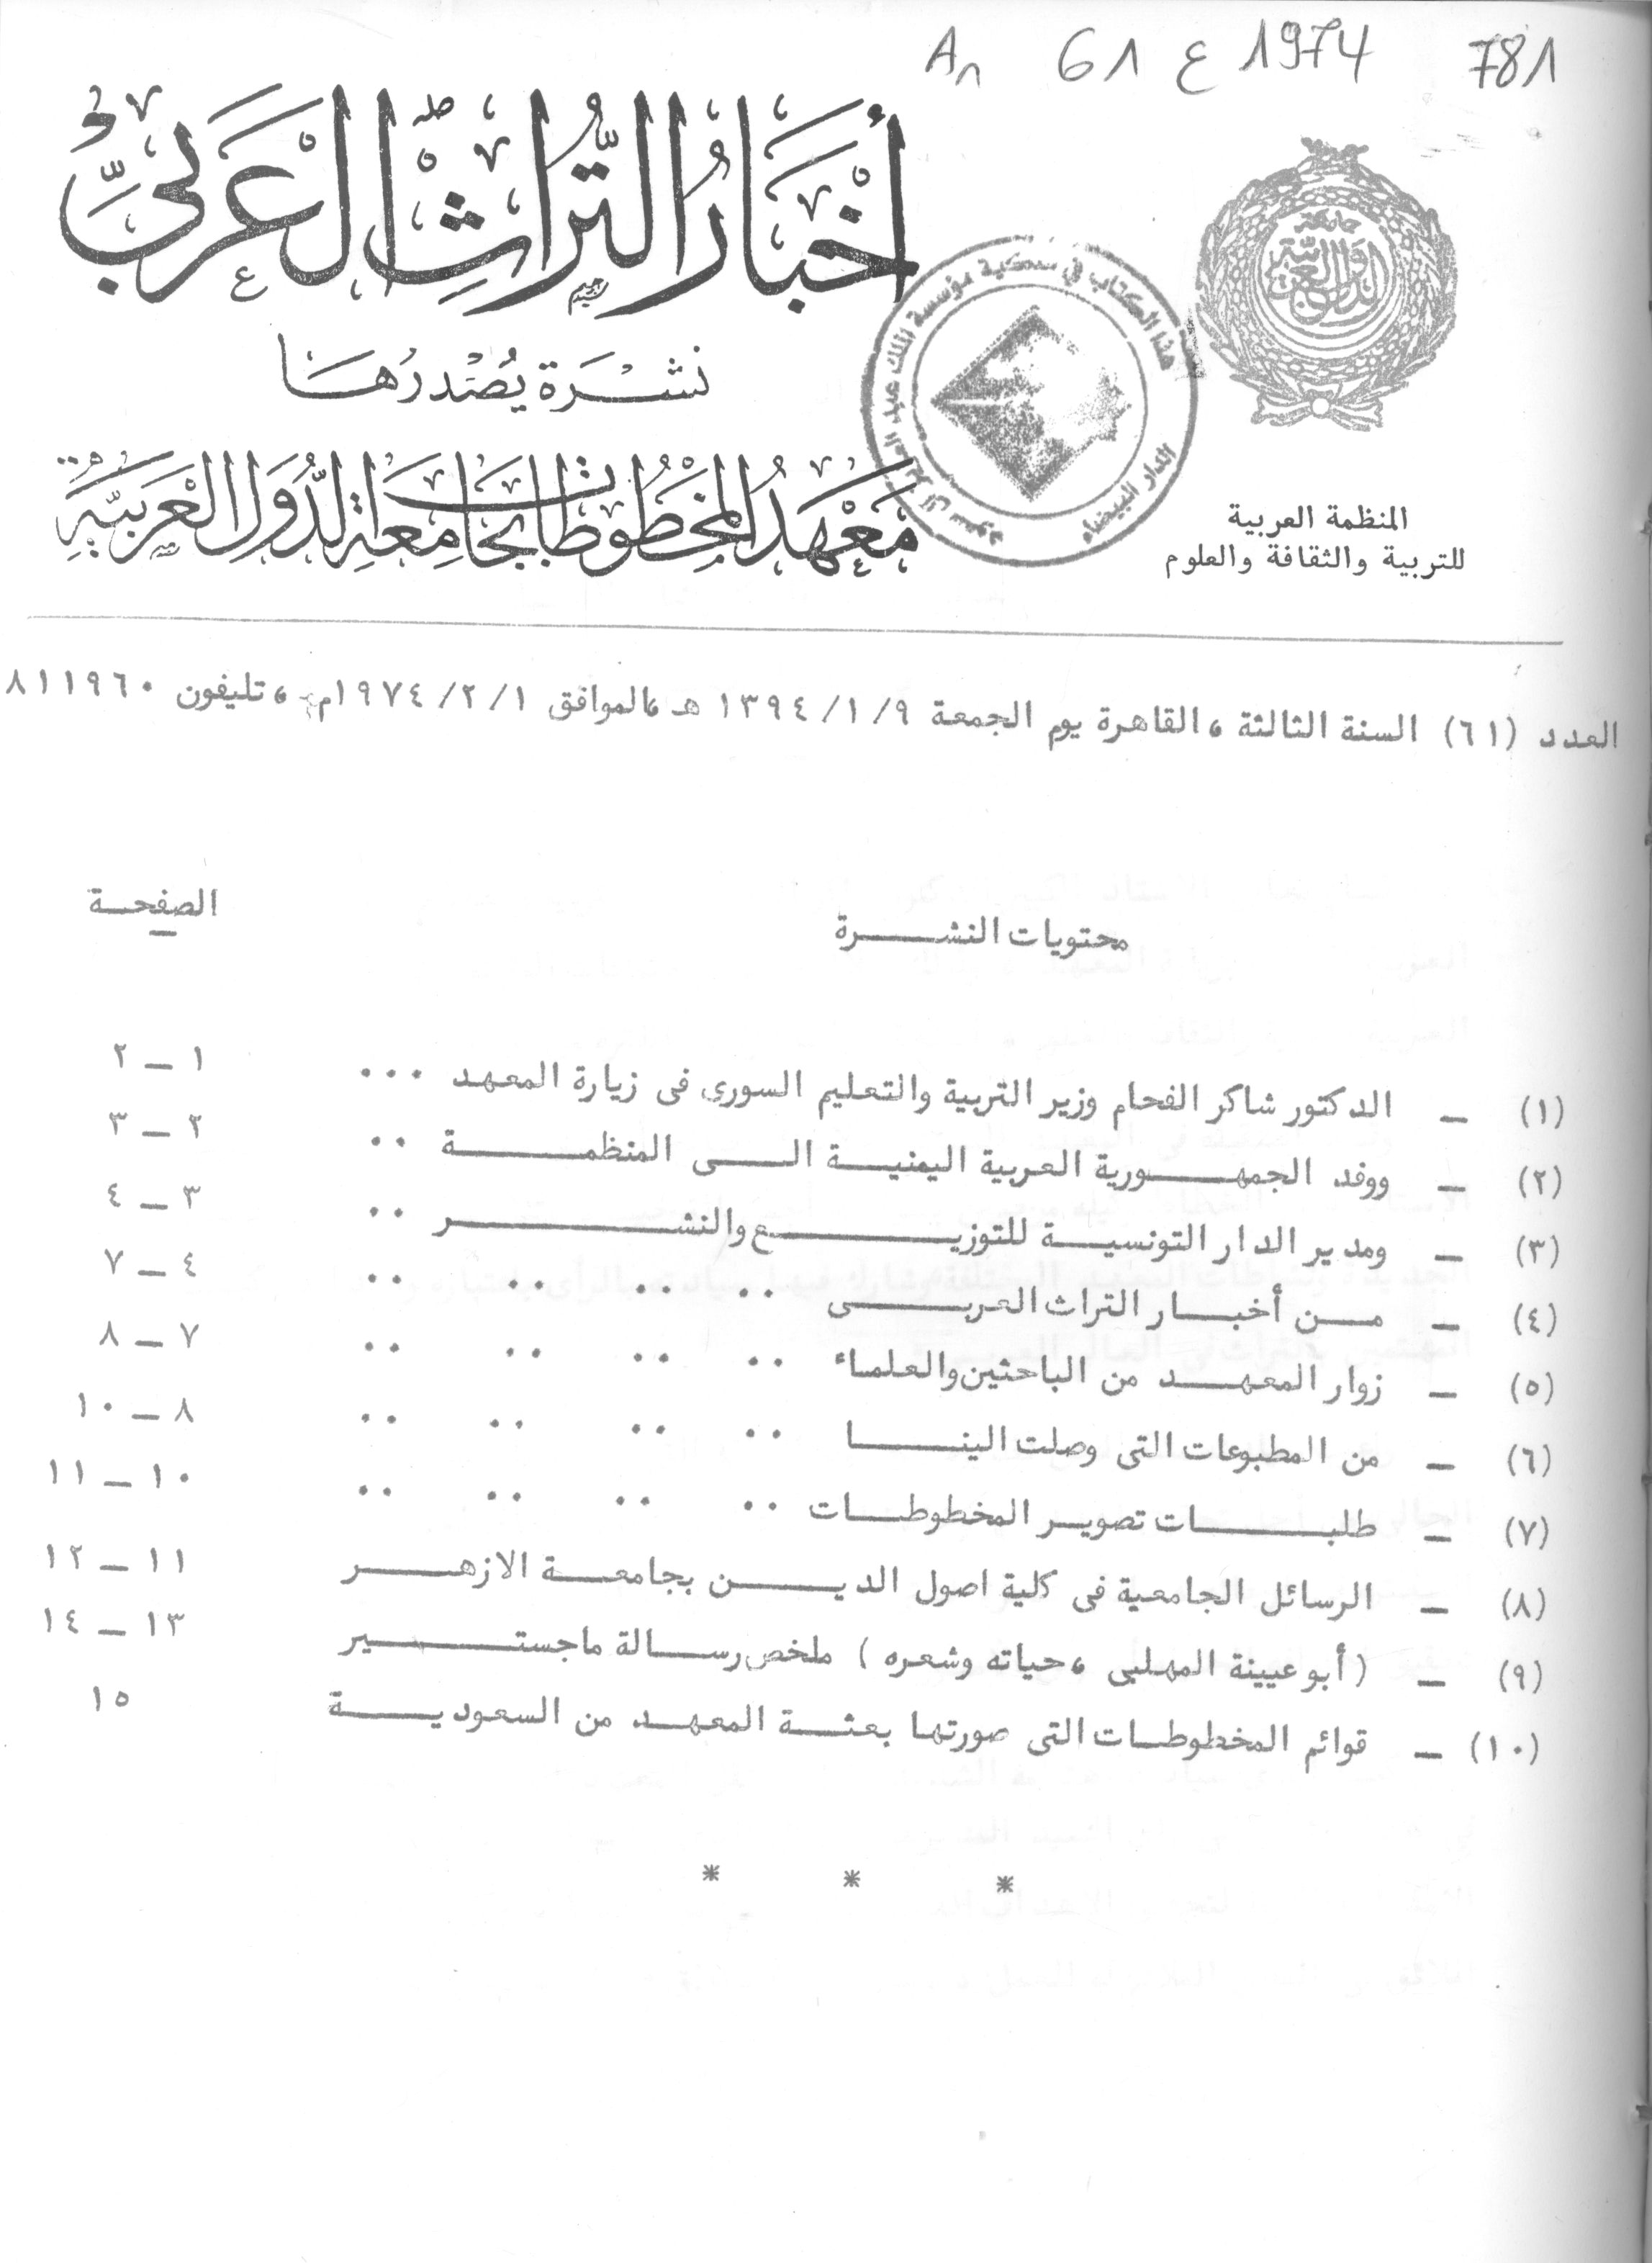 An 61 ع 1974 781
أَخْبَارُ التُّرَاثِ الْعَرَبِيِّ
نَشْرَة يُصْدرُهَا
مَعْهَدُ المَخْطُوطَات بجَامِعَةِ الدُّوَلِ الْعَرَبِيَّةِ
جامعة
الدول العربية
هذا الكتاب في ملكية مؤسسة الملك عبد العزيز آل سعود
الدار البيضاء
المنظمة العربية
للتربية والثقافة والعلوم
العدد (٦١) السنة الثالثة ، القاهرة يوم الجمعة ١٣٩٤/١/٩ هـ ، الموافق ١٩٧٤/٢/١م ، تليفون ٨١١٩٦٠
محتويات النشــرة الصفحـة
(١) ـ الدكتور شاكر الفحام وزير التربية والتعليم السورى فى زيارة المعهد ... ١ ـ ٢
(٢) ـ ووفد الجمهــورية العربية اليمنيـة الــى المنظمــة .. ٢ ـ ٣
(٣) ـ ومدير الدار التونسيـة للتوزيــع والنشــر .. ٣ ـ ٤
(٤) ـ مــن أخبـار التراث العربــى .. .. .. .. ٤ ـ ٧
(٥) ـ زوار المعهـد من الباحثين والعلماء .. .. .. .. ٧ ـ ٨
(٦) ـ من المطبوعات التى وصلت الينــا .. .. .. .. ٨ ـ ١٠
(٧) ـ طلبــات تصويـر المخطوطـات .. .. .. .. ١٠ ـ ١١
(٨) ـ الرسائل الجامعية فى كلية اصول الديــن بجامعـة الازهــر ١١ ـ ١٢
(٩) ـ (أبو عيينة المهلبى ، حياته وشعره ) ملخص رسـالة ماجستــير ١٣ ـ ١٤
(١٠) ـ قوائم المخطوطـات التى صورتها بعثـة المعهـد من السعوديــة ١٥
* * *